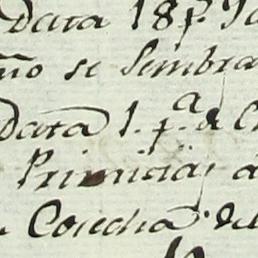 Data 18 f.
ño se sembra
Data 1. f.ª d
Primicias
Cosecha. de